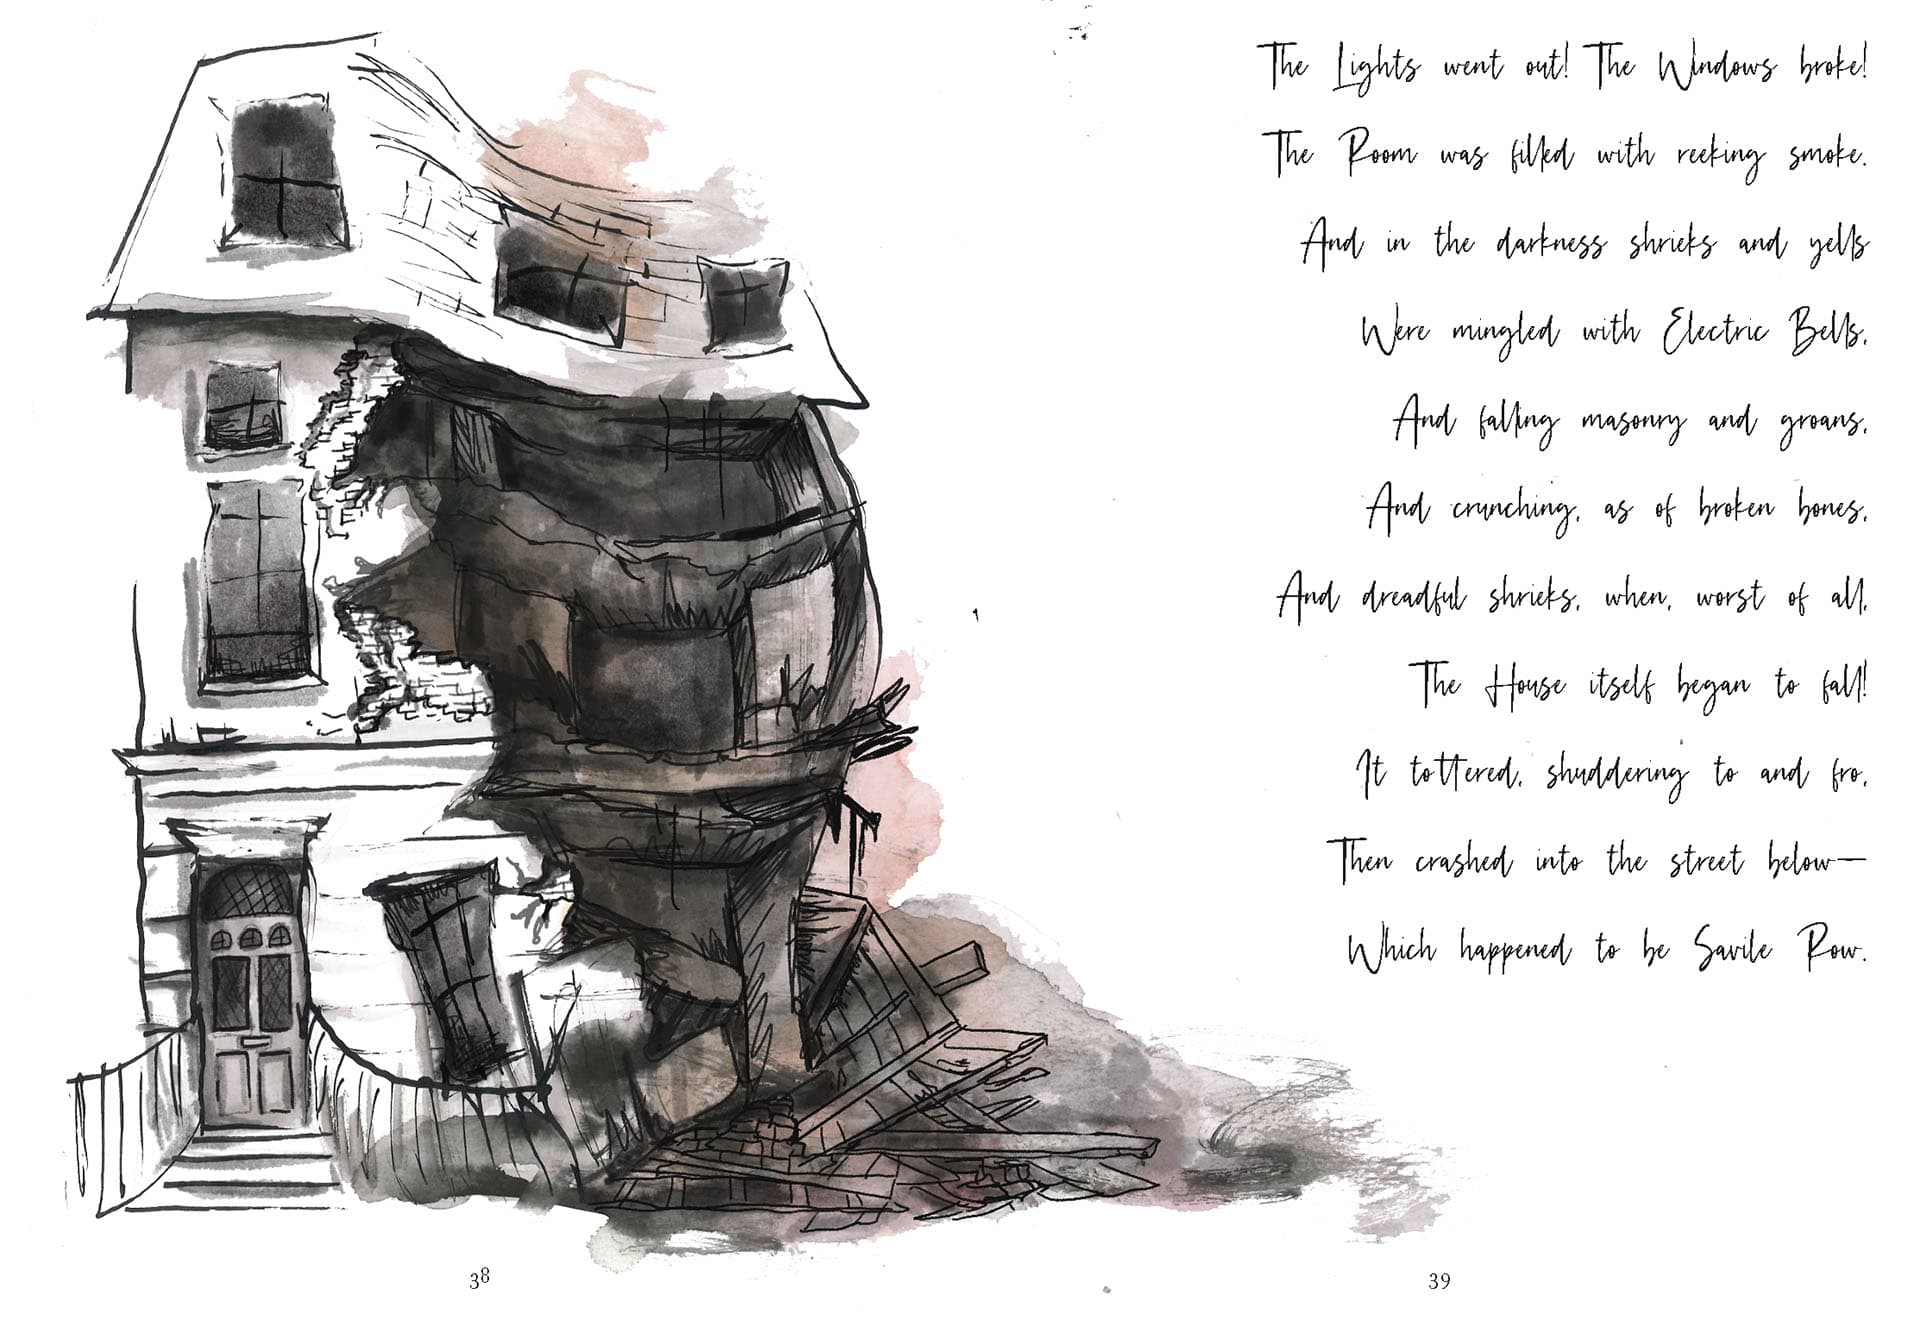 The Lights went out! The Windows broke!
The Room was filled with reeking smoke.
And in the darkness shrieks and yells
Were mingled with Electric Bells,
And falling masonry and groans,
And crunching, as of broken bones,
And dreadful shrieks, when, worst of all,
The House itself began to fall!
It tottered, shuddering to and fro,
Then crashed into the street below—
Which happened to be Savile Row.
38
39